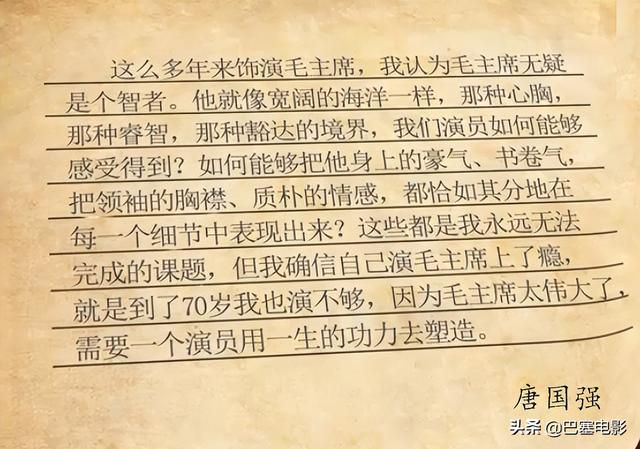 这么多年来饰演毛主席，我认为毛主席无疑
是个智者。他就像宽阔的海洋一样，那种心胸，
那种睿智，那种豁达的境界，我们演员如何能够
感受得到？如何能够把他身上的豪气、书卷气，
把领袖的胸襟、质朴的情感，都恰如其分地在
每一个细节中表现出来？这些都是我永远无法
完成的课题，但我确信自己演毛主席上了瘾，
就是到了70岁我也演不够，因为毛主席太伟大了，
需要一个演员用一生的功力去塑造。
唐国强
头条 @巴塞电影